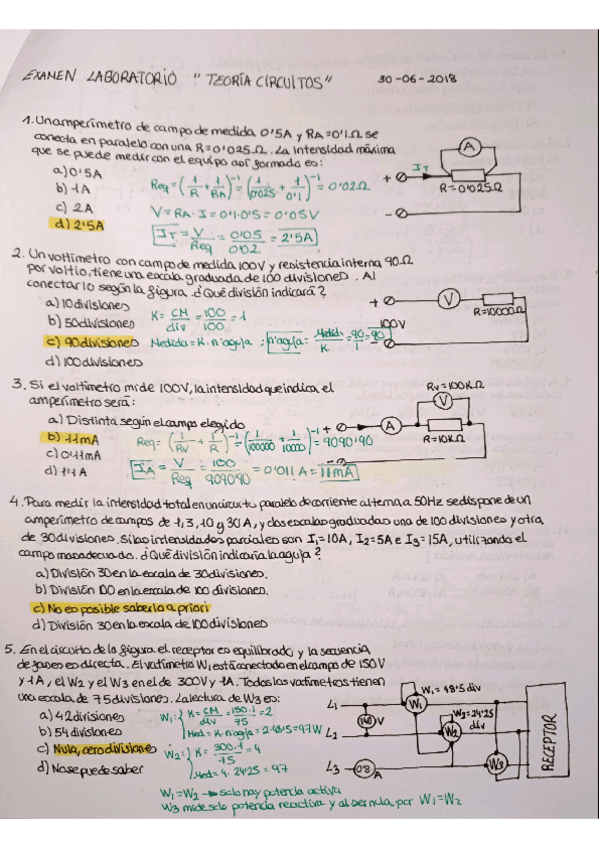 EXAMEN LABORATORIO "TEORÍA CIRCUITOS" 30-06-2018
1. Un amperímetro de campo de medida 0'5A y RA=0'1Ω se
conecta en paralelo con una R=0'025Ω. La intensidad máxima
que se puede medir con el equipo así formado es:
a) 0'5A
b) 1A
c) 2A
d) 2'5A
Req = (1/R + 1/RA)^-1 = (1/0'025 + 1/0'1)^-1 = 0'02Ω
V = RA · I = 0'1·0'5 = 0'05V
IT = V/Req = 0'05/0'02 = 2'5A
A
IT
+
R=0'025Ω
-
2. Un voltímetro con campo de medida 100V y resistencia interna 90Ω
por voltio, tiene una escala graduada de 100 divisiones. Al
conectarlo según la figura. ¿Qué división indicará?
a) 10 divisiones
b) 50 divisiones
c) 90 divisiones
d) 100 divisiones
K = CM/div = 100/100 = 1
Medida = K · nºaguja ; nºaguja = Medida/K = 90/1 = 90
+
V
R=10000Ω
100V
-
3. Si el voltímetro mide 100V, la intensidad que indica el
amperímetro será:
a) Distinta según el campo elegido
b) 11mA
c) 0'11mA
d) 1'1A
Req = (1/RV + 1/R)^-1 = (1/100000 + 1/10000)^-1 = 9090'90
IA = V/Req = 100/9090'90 = 0'011A = 11mA
RV=100KΩ
V
+
A
R=10KΩ
-
4. Para medir la intensidad total en un circuito paralelo de corriente alterna a 50Hz se dispone de un
amperímetro de campos de 1, 3, 10 y 30A, y dos escalas graduadas una de 100 divisiones y otra
de 30 divisiones. Si las intensidades parciales son I1=10A, I2=5A e I3=15A, utilizando el
campo mas adecuado. ¿Qué división indicaría la aguja?
a) División 30 en la escala de 30 divisiones.
b) División 100 en la escala de 100 divisiones.
c) No es posible saberlo a priori
d) División 30 en la escala de 100 divisiones
5. En el circuito de la figura el receptor es equilibrado y la secuencia
de fases es directa. El vatímetro W1 está conectado en el campo de 150V
y 1A, el W2 y el W3 en el de 300V y 1A. Todos los vatímetros tienen
una escala de 75 divisiones. La lectura de W3 es:
a) 42 divisiones
b) 54 divisiones
c) Nula, cero divisiones
d) No se puede saber
W1: K = CM/div = 150·1/75 = 2
Med = K · nºaguja = 2·48'5 = 97W
W2: K = 300·1/75 = 4
Med = 4·24'25 = 97
W1 = W2 → solo hay potencia activa
W3 mide solo potencia reactiva y al ser nula, por W1=W2
W1 = 48'5 div
L1
W1
140 V
W2=24'25 div
L2
W2
L3
0'8 A
W3
RECEPTOR